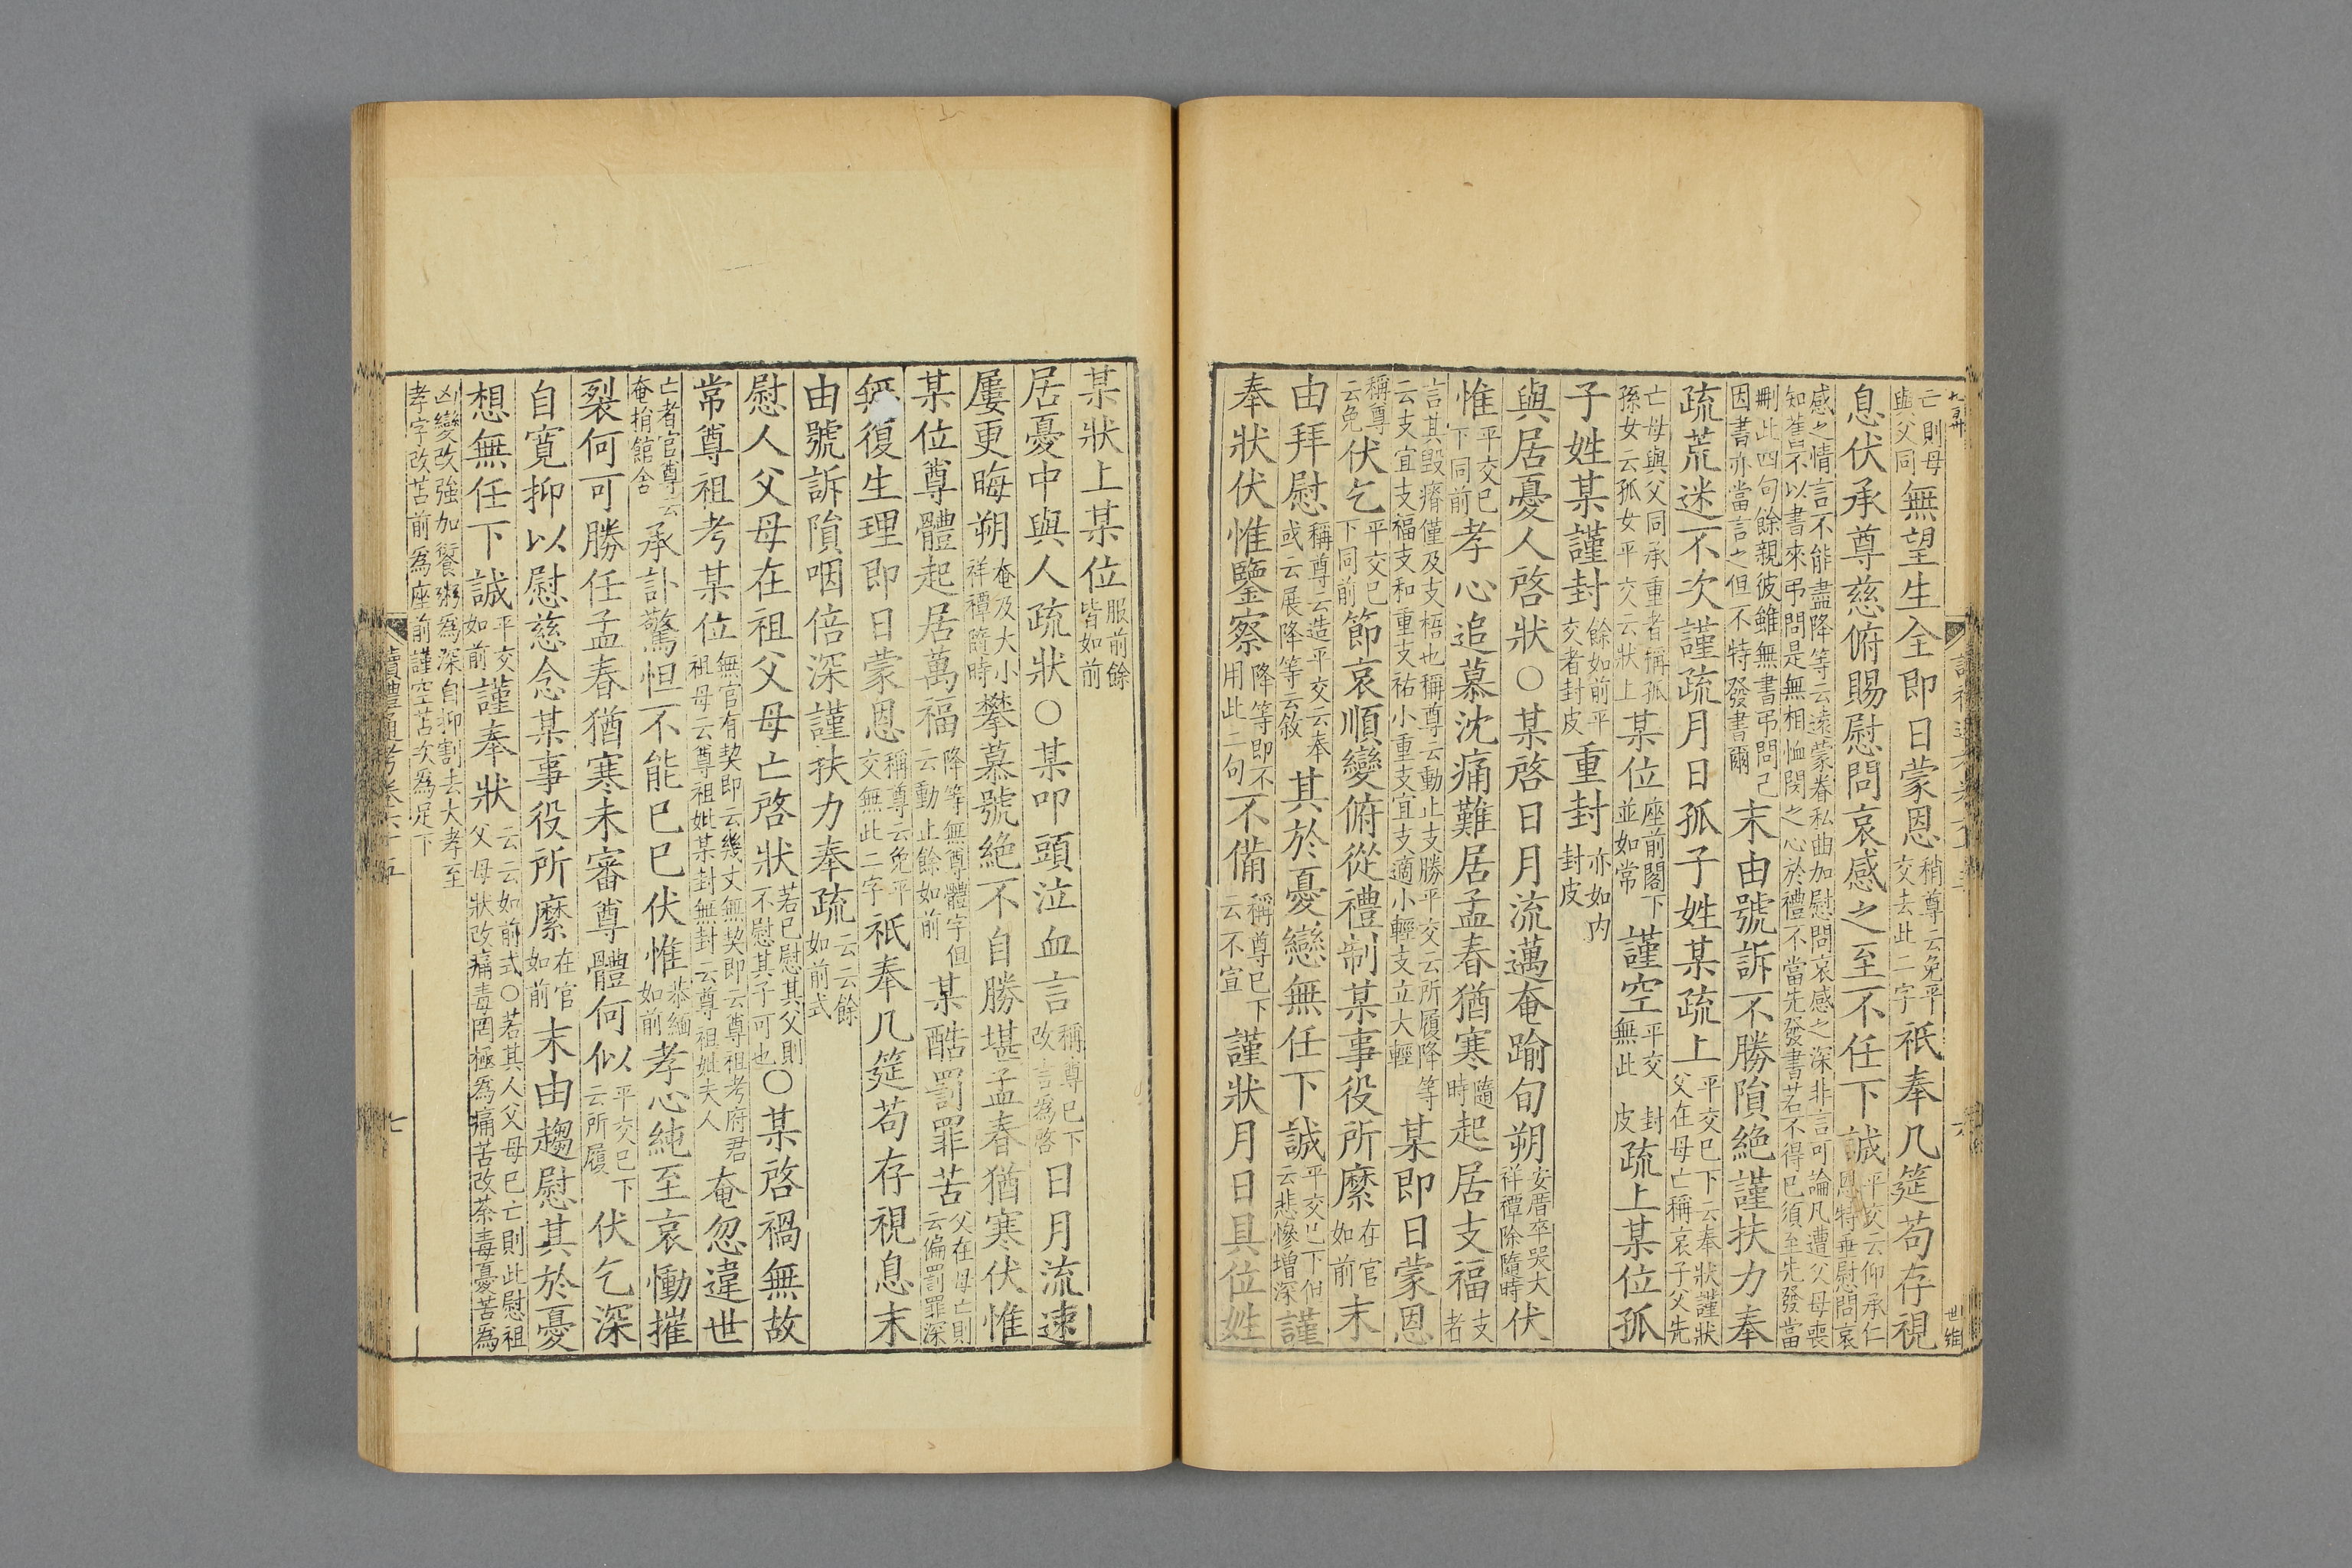 亡則母與父同無望生全即日蒙恩稍尊云免平交去此二字祇奉几筵苟存視
息伏承尊慈俯賜慰問哀感之至不任下誠平交云仰承仁恩特垂慰問哀
感之情言不能盡降等云遠蒙眷私曲加慰問哀感之深非言可論凡遭父母喪知舊不以書來弔問是無相恤閔之心於禮不當先發書若不得已須至先發當
刪此四句餘親彼雖無書弔問己因書亦當言之但不特發書爾末由號訴不勝隕絶謹扶力奉
疏荒迷不次謹疏月日孤子姓某疏上平交已下云奉狀謹狀父在母亡稱哀子父先
亡母與父同承重者稱孤孫女云孤女平交云狀上某位座前閣下並如常謹空平交無此封皮疏上某位孤
子姓某謹封餘如前平交者封皮重封亦如内封皮
與居憂人啓狀○某啓日月流邁奄踰旬朔安厝卒哭大祥禫除隨時伏
惟平交已下同前孝心追慕沈痛難居孟春猶寒隨時起居支福支者
言其毀瘠僅及支梧也稱尊云動止支勝平交云所履降等云支宜支福支和重支祐小重支宜支適小輕支立大輕某即日蒙恩
稱尊云免伏乞平交已下同前節哀順變俯從禮制某事役所縻在官如前末
由拜慰稱尊云造平交云奉或云展降等云敘其於憂戀無任下誠平交已下但云悲慘增深謹
奉狀伏惟鑒察降等即不用此二句不備稱尊已下云不宣謹狀月日具位姓
某狀上某位服前餘皆如前
居憂中與人疏狀○某叩頭泣血言稱尊已下改言爲啓日月流速
屢更晦朔奄及大小祥禫隨時攀慕號絶不自勝堪孟春猶寒伏惟
某位尊體起居萬福降等無尊體字但云動止餘如前某酷罰罪苦父在母亡則云偏罰罪深
無復生理即日蒙恩稱尊云免平交無此二字祇奉几筵苟存視息末
由號訴隕咽倍深謹扶力奉疏云云餘如前式
慰人父母在祖父母亡啓狀若已慰其父則不慰其子可也○某啓禍無故
常尊祖考某位無官有契即云幾丈無契即云尊祖考府君祖母云尊祖妣某封無封云尊祖妣夫人奄忽違世
亡者官尊云奄捐館舍承訃驚怛不能已已伏惟恭緬如前孝心純至哀慟摧
裂何可勝任孟春猶寒未審尊體何似平交已下云所履伏乞深
自寬抑以慰慈念某事役所縻在官如前末由趨慰其於憂
想無任下誠平交如前謹奉狀云云如前式○若其人父母已亡則此慰祖父母狀改痛毒罔極爲痛苦改荼毒憂苦爲
凶變改強加餐粥爲深自抑割去大孝至孝字改苫前爲座前謹空苫次爲足下
讀禮通考卷六十五
七